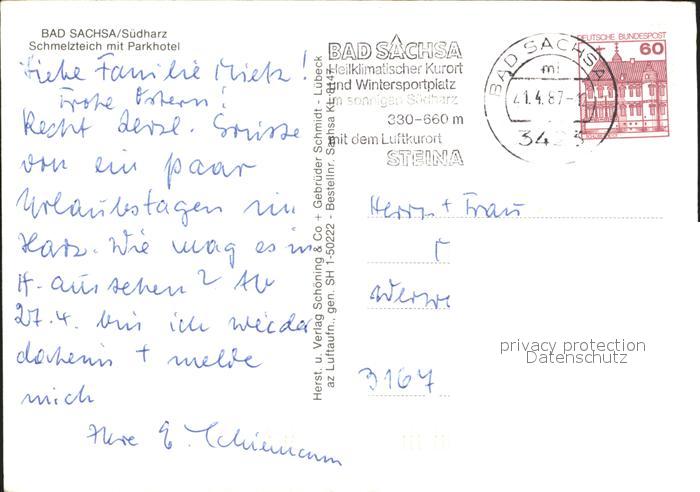 BAD SACHSA/Südharz
Schmelzteich mit Parkhotel
Liebe Familie Mietz!
Frohe Ostern!
Recht herzl. Grüsse
von ein paar
Urlaubstagen im
Harz. Wie mag es in
H. aussehen? Ab
27.4. bin ich wieder
daheim + melde
mich
Ihre E. Schiemann
Herst. u. Verlag Schöning & Co + Gebrüder Schmidt - Lübeck
az Luftaufn., gen. SH 1-50222 - Bestellnr. Sachsa KL 8147
BAD SACHSA
Heilklimatischer Kurort
und Wintersportplatz
im sonnigen Südharz
330–660 m
mit dem Luftkurort
STEINA
BAD SACHSA
ml
21.4.87-1
3423
DEUTSCHE BUNDESPOST
60
Herrn + Frau
3167
privacy protection
Datenschutz